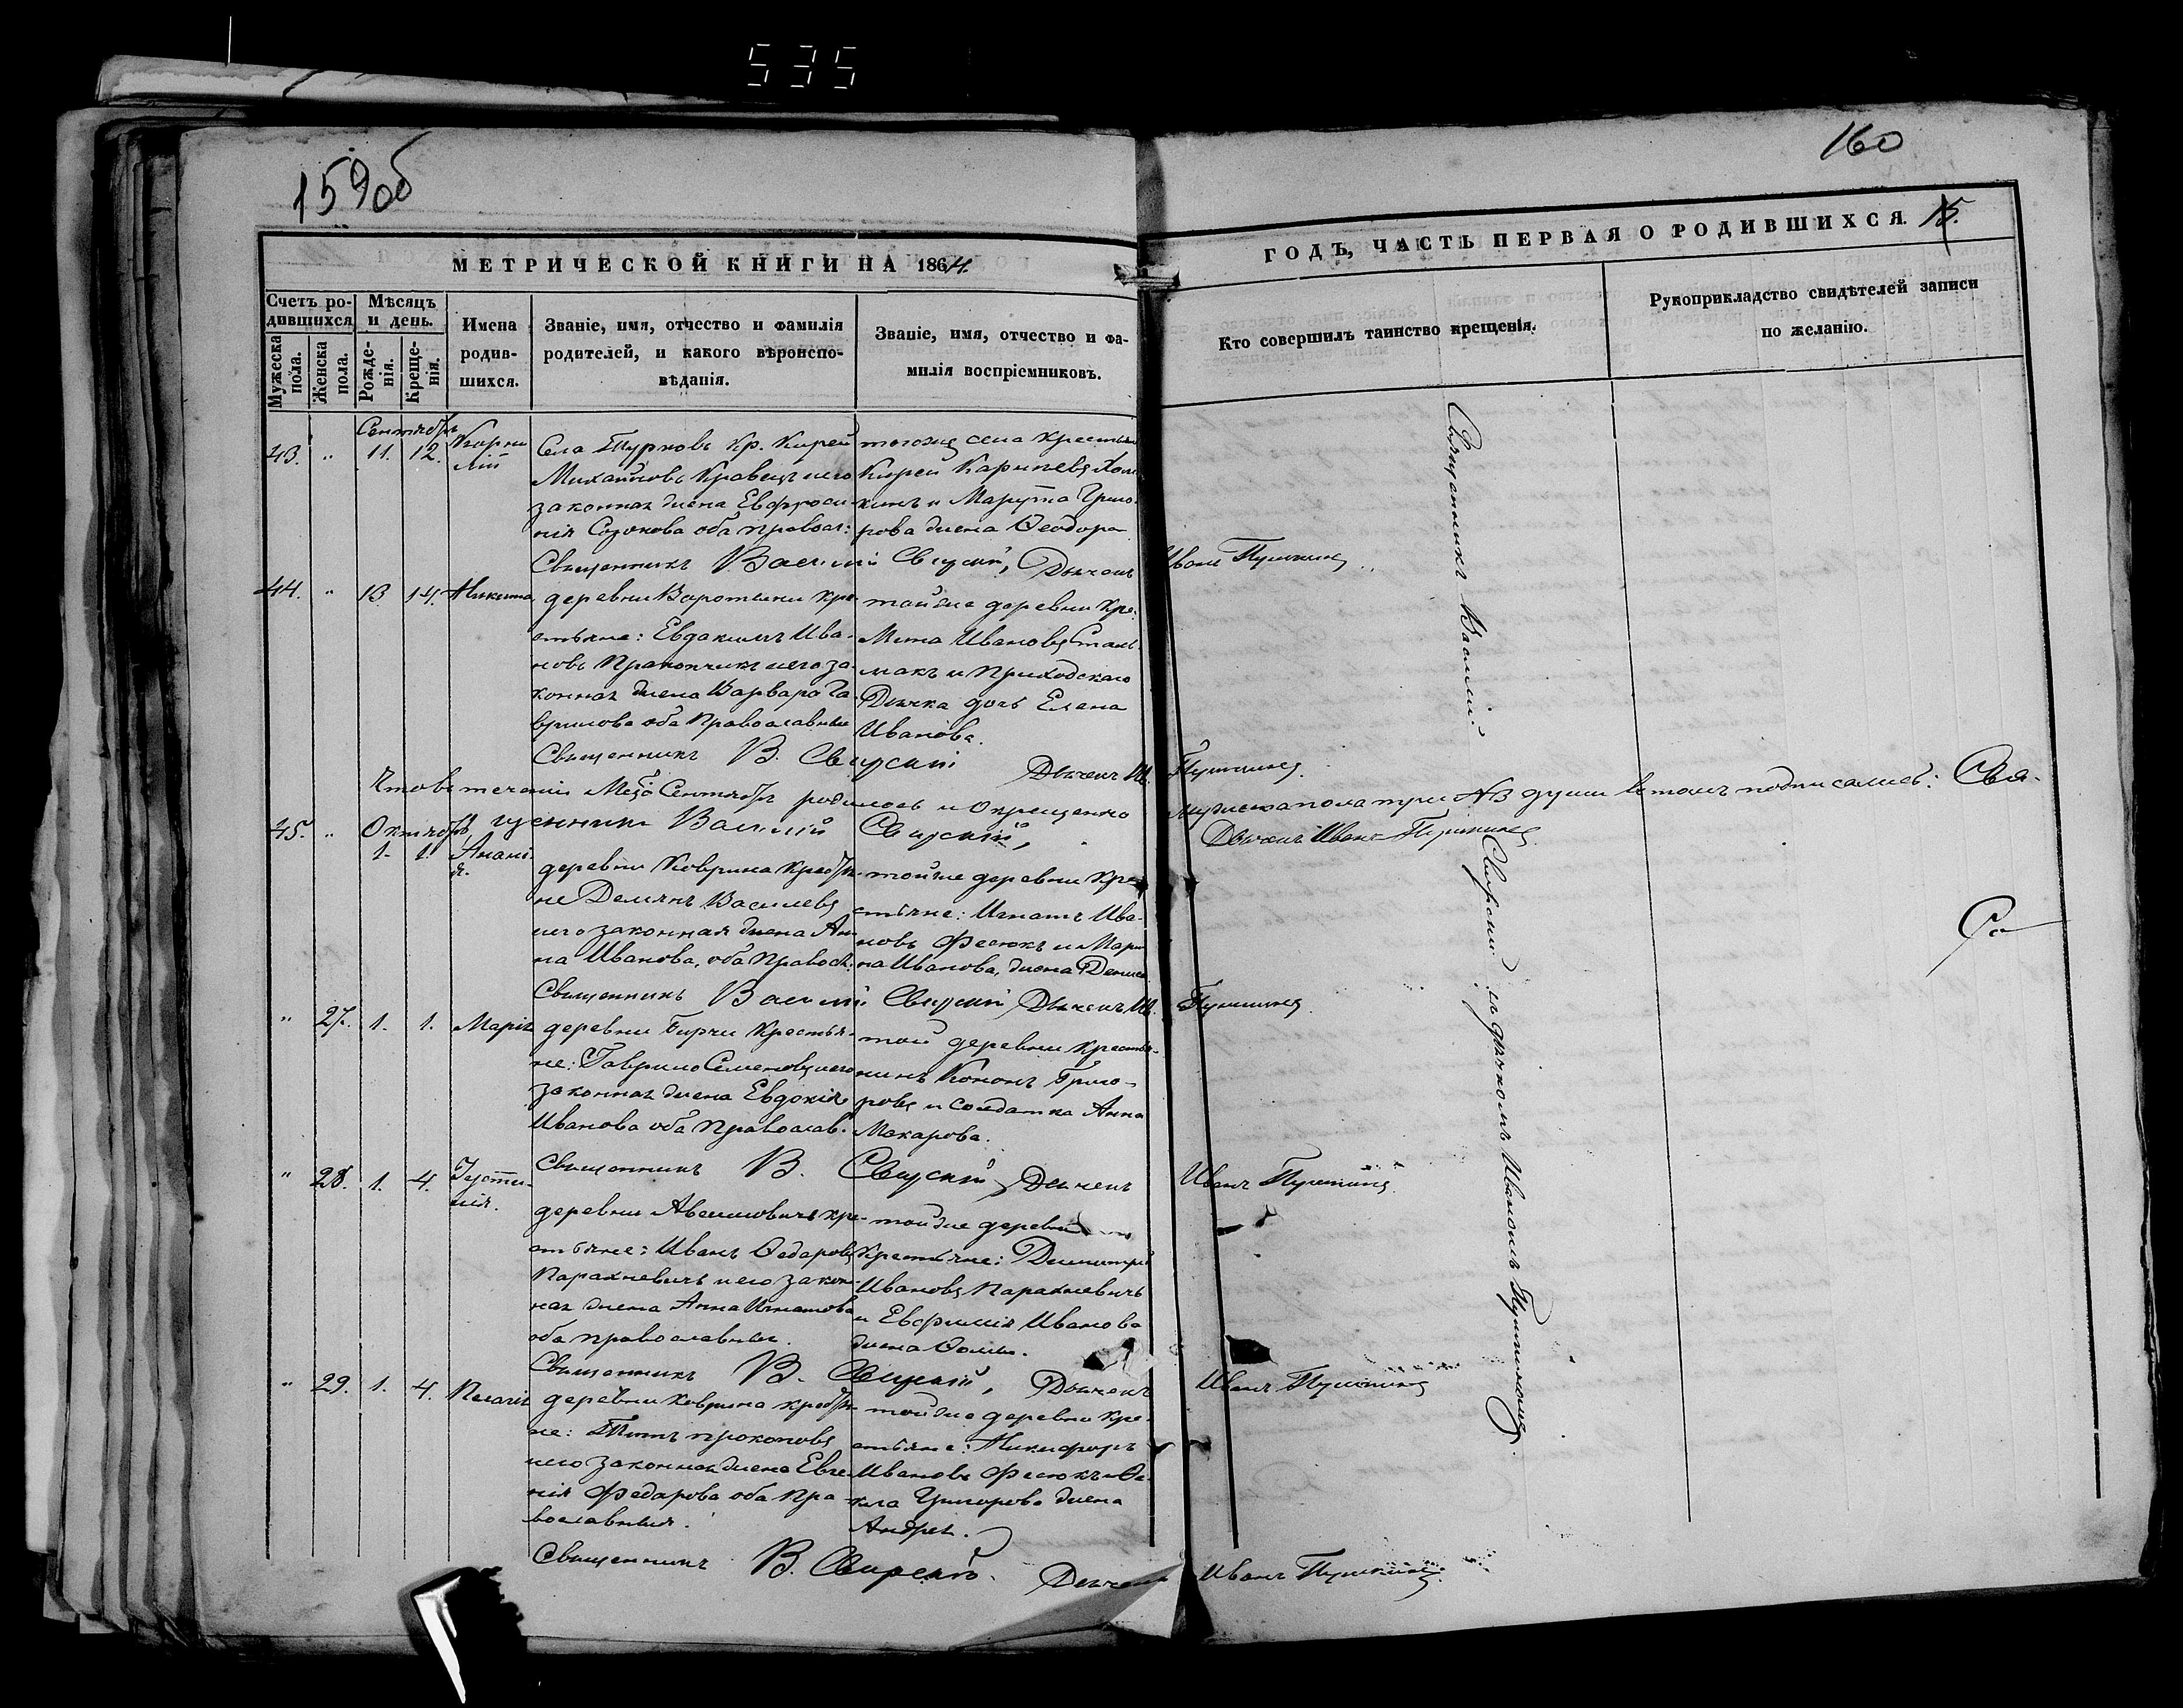 535
159об
160
МЕТРИЧЕСКОЙ КНИГИ НА 1864.
ГОДЪ, ЧАСТЬ ПЕРВАЯ О РОДИВШИХСЯ. 15.
Счетъ ро-
дившихся
Мужеска
пола.
Женска
пола.
Мѣсяцъ
и день.
Рожде-
нія.
Креще-
нія.
Имена
родив-
шихся.
Званіе, имя, отчество и фамилія
родителей, и какого вѣроиспо-
вѣданія.
Званіе, имя, отчество и фа-
милія воспріемниковъ.
Кто совершилъ таинство крещенія.
Рукоприкладство свидѣтелей записи
по желанію.
Сентябрь
43. " 11. 12. Корни
лій
Села Турковъ Кр. Кирей
Михайловъ Кравецъ и его
законная жена Евфроси-
нія Созонова оба правосл:
тогожъ села крестьян
Кирей
и Марѳа Григо-
рова жена Ѳеодора
Священникъ Василій Свирскій, Дьячекъ Иванъ Пушкинъ
44. " 13 14. Никита
деревни Воротыни кре-
стьяне: Евдакимъ Ива-
новъ и его за-
конная жена Варвара Га-
врилова оба Православные
тойже деревни кре-
Мина Ивановъ
и Приходскаго
Дьячка дочь Елена
Иванова.
Священникъ В. Свирскій Дьячекъ И. Пушкинъ.
Что въ теченіи Сентябрь родилось и Окрещенно мужеска пола три души въ томъ подписались: Свя-
щенникъ Василій Свирскій, Дьячекъ Иванъ Пушкинъ.
45. " Октябрь
1. 1. Анані
я.
деревни Коврина
не Демянъ Василевъ
и его законная жена Ан
на Иванова, оба Правосл.
тойже деревни Кре
стьяне: Игнатъ Ива-
новъ Фесюкъ и Мари
на Иванова, жена Дениса
Священникъ Василій Свирскій Дьячекъ И. Пушкинъ.
" 27. 1. 1. Марія
деревни Бирчи Крестья-
не: Гаврило Семеновъ и его
законная жена Евдокія
Иванова оба Православ.
той деревни Крестья-
нинъ Кононъ Григо-
ровъ и солдатка Анна
Макарова.
Священникъ В. Свирскій, Дьячекъ Иванъ Пушкинъ.
" 28. 1. 4. Іусти-
нія.
деревни кре-
стьяне: Иванъ Ѳедаровъ
Парахневичъ и его закон-
ная жена Анна Игнатова
оба православныи.
тойже деревни
Крестьяне: Димитрій
Ивановъ Парахневичъ
и Евфимія Иванова
жена Ѳомы.
Священникъ В. Свирскій, Дьячекъ Иванъ Пушкинъ
" 29. 1. 4. Пелагія
деревни Коврина
не: Титъ Прокоповъ
и его законная жена Евге-
нія Федарова оба Пра-
вославныя.
тойже деревни Кре-
стьяне: Никифоръ
Ивановъ Фесюкъ и Ѳе-
кла Григорова жена
Андрея.
Священникъ В. Свирскій. Дьячекъ Иванъ Пушкинъ.
Священникъ Василій Свирскій съ дьячкомъ Иваномъ Пушкиномъ.